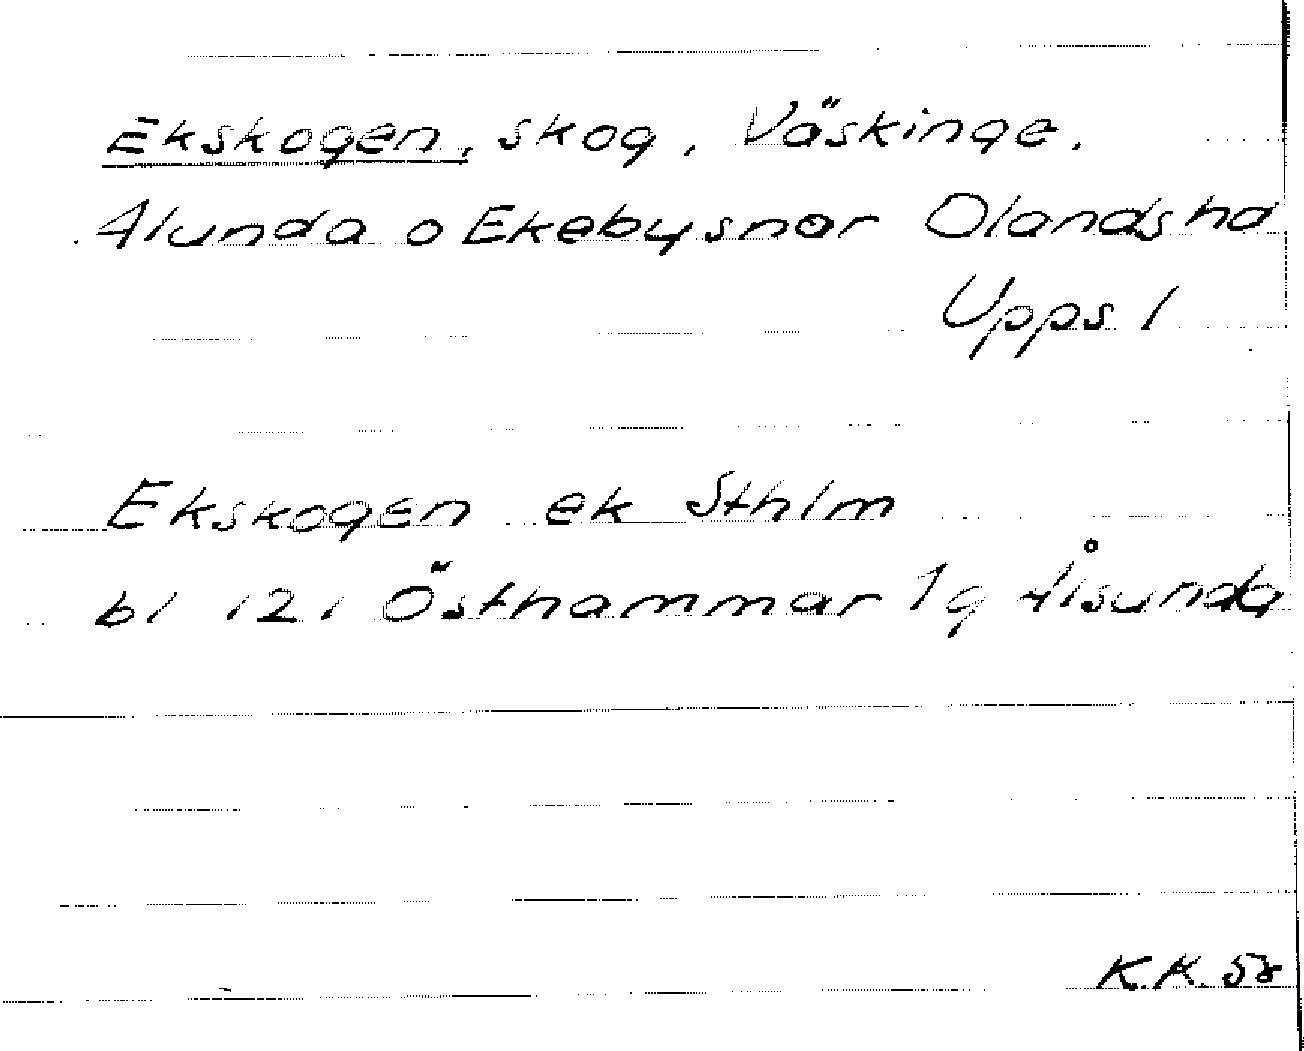 Ekskogen, skog, Väskinge.
Alunda o Ekebysnar Olands hd
Upps l
Ekskogen ek Sthlm
bl 121 Östhammar 1g Åsunda
K.K. 58